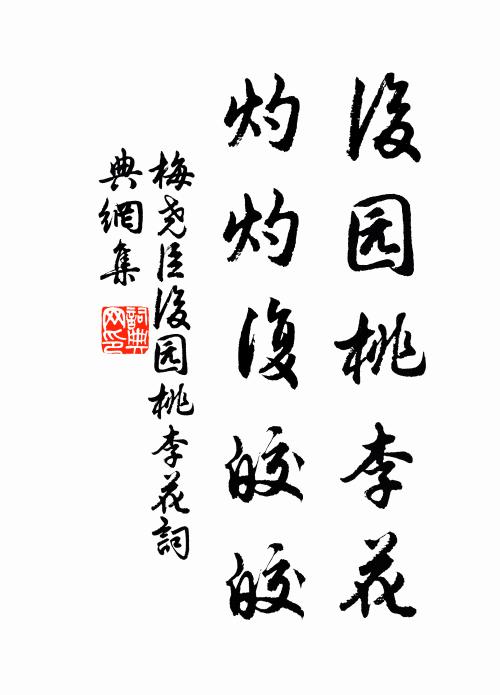 後园桃李花
灼灼復皎皎
梅尧臣後园桃李花詞
典網集
詞典
网印